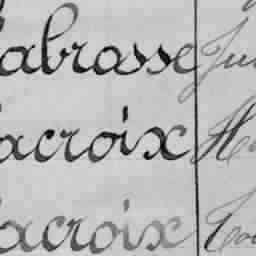 abrosse Ju
acroix H
acroix